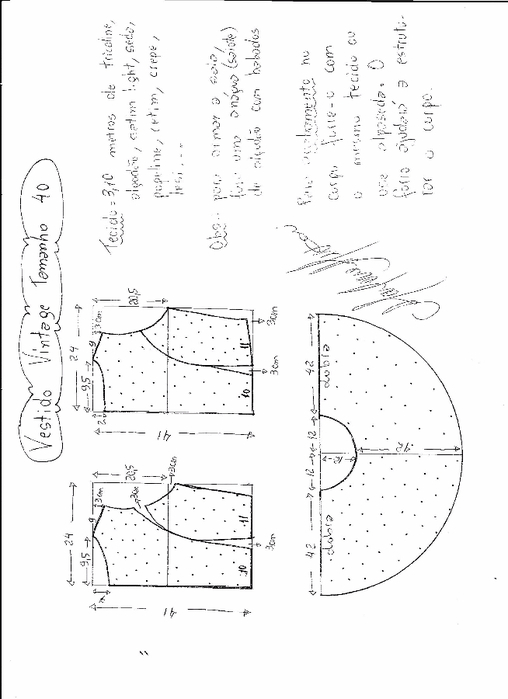 Vestido Vintage Tamanho 40
Tecido = 3,10 metros de tricoline,
algodão, cetim light, seda,
popeline, cetim, crepe,
Obs... para armar a saia,
faça uma anágua (saiote)
de algodão com babados
Para acabamento no
corpo forre-o com
o mesmo tecido ou
use
O
forro ajudará a estrutu-
rar o corpo.
24
9,5
9
3cm
20,5
3cm
3cm
41
10
11
3cm
24
9,5
9
3cm
20,5
2
41
10
11
3cm
3cm
42
12
12
42
dobra
dobra
12
42